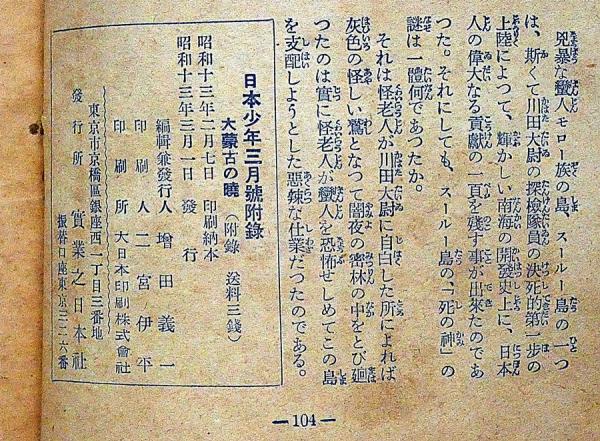 兇暴な蠻人モロー族の島、スールー島の一つ
は、斯くて川田大尉の探檢隊員の決死的第一歩の
上陸によつて、輝かしい南海の開發史上に、日本
人の偉大なる貢獻の一頁を殘す事が出來たのであ
つた。それにしても、スールー島の、「死の神」の
謎は一體何であつたか。
それは怪老人が川田大尉に自白した所によれば
灰色の怪しい鷲となつて闇夜の密林の中をとび廻
つたのは實に怪老人が蠻人を恐怖せしめてこの島
を支配しようとした惡辣な仕業だつたのである。
日本少年三月號附錄
大蒙古の曉(附錄 送料三錢)
昭和十三年二月七日 印刷納本
昭和十三年三月一日 發行
編輯兼發行人 增田義一
印刷人 二宮伊平
印刷所 大日本印刷株式會社
東京市京橋區銀座西一丁目三番地
發行所 實業之日本社
振替口座東京三二六番
—104—